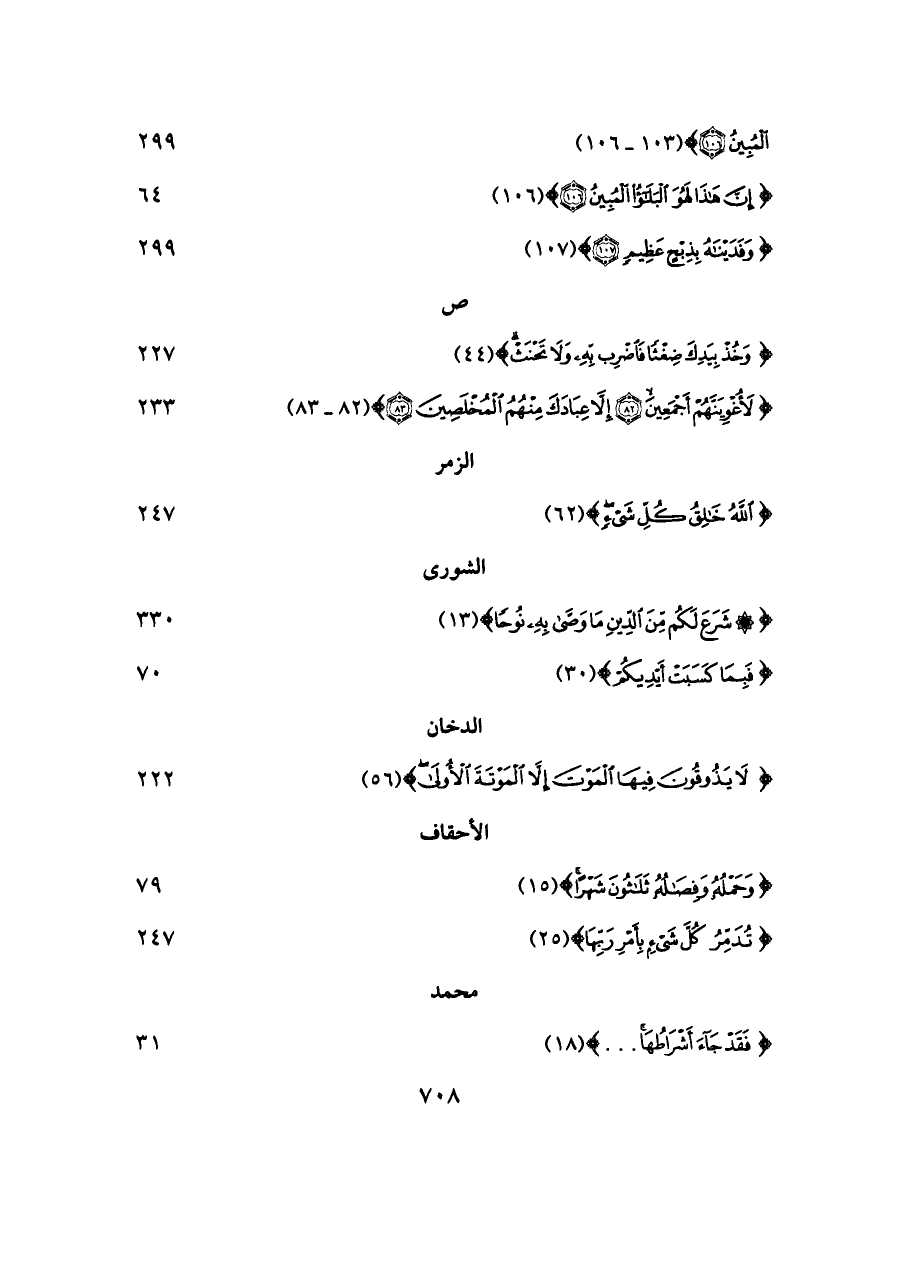 ٱلْمُبِينُ ۝١٠٦﴾ (١٠٣ ـ ١٠٦) ٢٩٩
﴿إِنَّ هَٰذَا لَهُوَ ٱلْبَلَٰٓؤُا۟ ٱلْمُبِينُ ۝١٠٦﴾ (١٠٦) ٦٤
﴿وَفَدَيْنَٰهُ بِذِبْحٍ عَظِيمٍ ۝١٠٧﴾ (١٠٧) ٢٩٩
ص
﴿وَخُذْ بِيَدِكَ ضِغْثًا فَٱضْرِب بِّهِۦ وَلَا تَحْنَثْ ۗ﴾ (٤٤) ٢٢٧
﴿لَأُغْوِيَنَّهُمْ أَجْمَعِينَ ۙ ۝٨٢ إِلَّا عِبَادَكَ مِنْهُمُ ٱلْمُخْلَصِينَ ۝٨٣﴾ (٨٢ ـ ٨٣) ٢٣٣
الزمر
﴿ٱللَّهُ خَٰلِقُ كُلِّ شَىْءٍ ۖ﴾ (٦٢) ٢٤٧
الشورى
﴿۞ شَرَعَ لَكُم مِّنَ ٱلدِّينِ مَا وَصَّىٰ بِهِۦ نُوحًا﴾ (١٣) ٣٣٠
﴿فَبِمَا كَسَبَتْ أَيْدِيكُمْ﴾ (٣٠) ٧٠
الدخان
﴿لَا يَذُوقُونَ فِيهَا ٱلْمَوْتَ إِلَّا ٱلْمَوْتَةَ ٱلْأُولَىٰ ۖ﴾ (٥٦) ٢٢٢
الأحقاف
﴿وَحَمْلُهُۥ وَفِصَٰلُهُۥ ثَلَٰثُونَ شَهْرًا ۚ﴾ (١٥) ٧٩
﴿تُدَمِّرُ كُلَّ شَىْءٍ بِأَمْرِ رَبِّهَا﴾ (٢٥) ٢٤٧
محمد
﴿فَقَدْ جَآءَ أَشْرَاطُهَا ۚ . . .﴾ (١٨) ٣١
٧٠٨